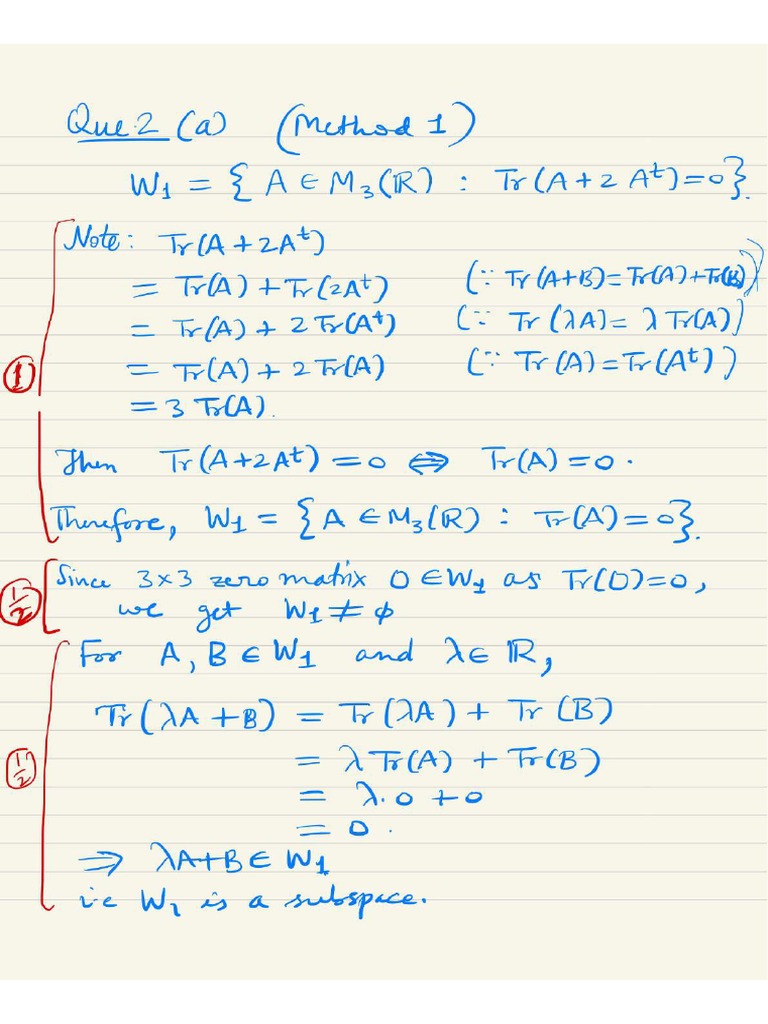 Que.2 (a) (Method 1)
W₁ = { A ∈ M₃(ℝ) : Tr(A + 2 Aᵗ) = 0 }.
Note: Tr(A + 2Aᵗ)
= Tr(A) + Tr(2Aᵗ) (∵ Tr(A+B) = Tr(A) + Tr(B))
= Tr(A) + 2 Tr(Aᵗ) (∵ Tr(λA) = λ Tr(A))
① = Tr(A) + 2 Tr(A) (∵ Tr(A) = Tr(Aᵗ))
= 3 Tr(A).
Then Tr(A+2Aᵗ) = 0 ⇔ Tr(A) = 0.
Therefore, W₁ = { A ∈ M₃(ℝ) : Tr(A) = 0 }.
½ Since 3×3 zero matrix 0 ∈ W₁ as Tr(0) = 0,
we get W₁ ≠ φ
For A, B ∈ W₁ and λ ∈ ℝ,
Tr(λA + B) = Tr(λA) + Tr(B)
½ = λ Tr(A) + Tr(B)
= λ.0 + 0
= 0.
⇒ λA+B ∈ W₁
i.e W₁ is a subspace.